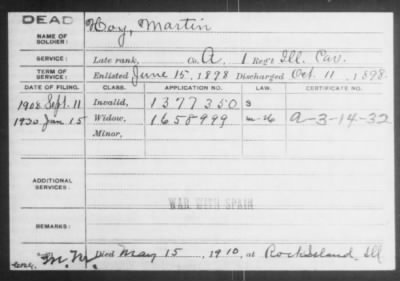 DEAD
NAME OF SOLDIER: Hoy, Martin
SERVICE: Late rank, Co. A, 1 Reg't Ill. Cav.
TERM OF SERVICE: Enlisted June 15, 1898 Discharged Oct. 11, 1898.
DATE OF FILING. CLASS. APPLICATION NO. LAW. CERTIFICATE NO.
1908 Sept. 11 Invalid, 1377350 S
1930 Jan 15 Widow, 1658999 A-3-14-32
Minor,
ADDITIONAL SERVICES:
WAR WITH SPAIN
REMARKS:
M.M. Died May 15, 1910, at Rock Island, Ill